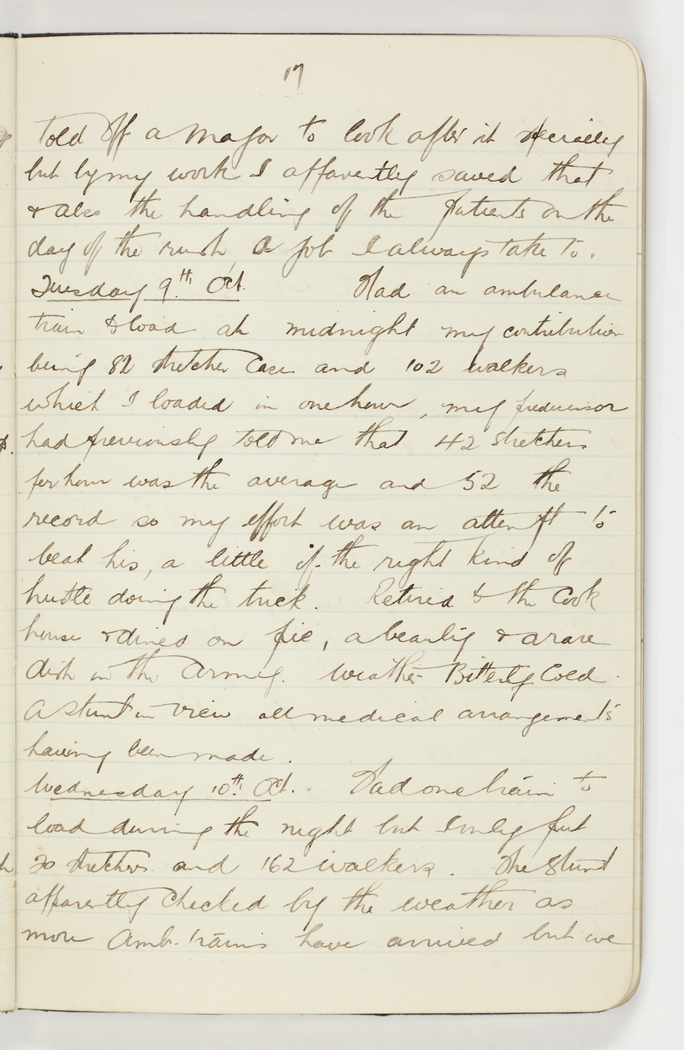 17
told off a Major to look after it specially
but by my work I apparently saved that
& also the handling of the patients on the
day of the rush, a job I always take to.
Tuesday 9th Oct. Had an ambulance
train to load at midnight my contribution
being 82 stretcher cases and 102 walkers
which I loaded in one hour, my predecessor
had previously told me that 42 stretchers
per hour was the average and 52 the
record so my effort was an attempt to
beat his, a little of the right kind of
hustle doing the trick. Retired to the Cook
house & dined on pie, a beauty & a rare
dish in the Army. Weather Bitterly Cold.
A stunt in view all medical arrangements
having been made.
Wednesday 10th Oct. Had one train to
load during the night but I only put
20 stretchers and 162 walkers. The Stunt
apparently checked by the weather as
more Amb. trains have arrived but we